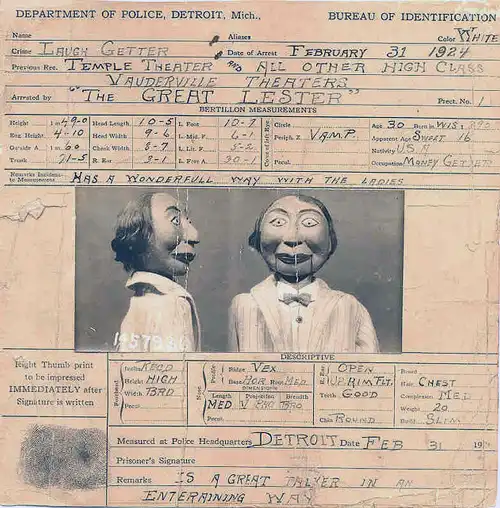 DEPARTMENT OF POLICE, DETROIT, Mich., BUREAU OF IDENTIFICATION
Name Aliases Color WHITE
Crime LAUGH GETTER Date of Arrest FEBRUARY 31 1924
Previous Rec. TEMPLE THEATER AND ALL OTHER HIGH CLASS
VAUDERVILLE THEATERS
Arrested by "THE GREAT LESTER" Prect. No. 1
BERTILLON MEASUREMENTS
Height 1 m 49-0 Head Length 10-5 L. Foot 10-7 Circle Age 30 Born in WIS
Eng. Height 4-10 Head Width 9-6 L. Mid. F. 6-1 Periph. Z VAMP. Apparent Age SWEET 16
Outside A. 1 m 60 Cheek Width 8-7 L. Lit. F. 5-2 Nativity U.S.A
Trunk 71-5 R. Ear 3-1 L. Fore A. 30-1 Pecul. Occupation MONEY GETTER
Remarks Incident to Measurement HAS A WONDERFULL WAY WITH THE LADIES
DESCRIPTIVE
Right Thumb print
to be impressed
IMMEDIATELY after
Signature is written
Forehead Inclin. RECD Ridge VEX OPEN Beard
Height HIGH Base HOR Root MED UP RIM FLT. Hair CHEST
Width BRD DIMENSIONS Teeth GOOD Complexion MED
Length Projection Breadth Weight 20
MED V PRO BRD Chin ROUND Build SLIM
Measured at Police Headquarters DETROIT Date FEB 31 19
Prisoner's Signature
Remarks IS A GREAT TALKER IN AN
ENTERAINING WAY